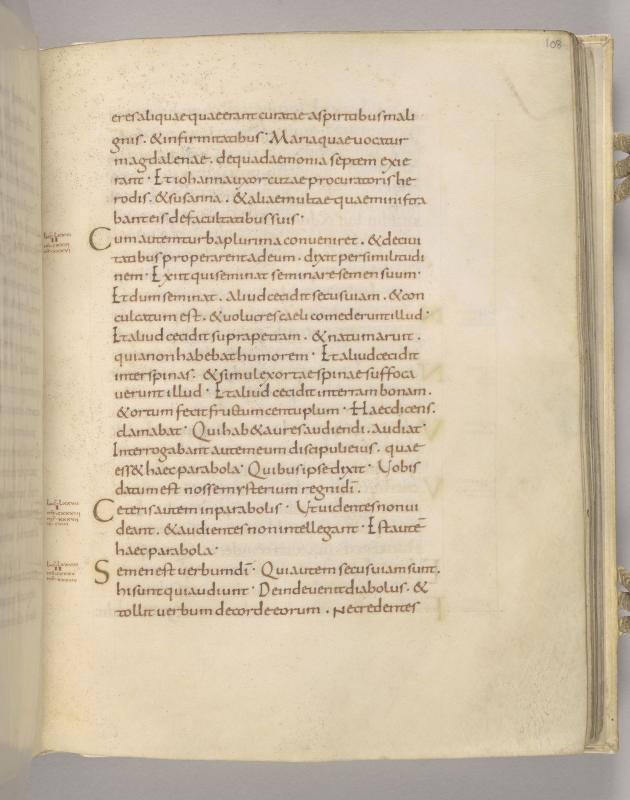 108
eres aliquae quae erant curatae aspiritibus mali
gnis. & infirmitatibus. Maria quae vocatur
magdalenae. de qua daemonia septem exie
rant. Et iohanna uxor cuzae procuratoris he
rodis. & susanna. & aliae multae quae ministra
bant eis de facultatibus suis.
Cum autem turba plurima conveniret. & de civi
tatibus properarent ad eum. dixit per similitudi
nem. Exiit qui seminat seminare semen suum.
Et dum seminat. aliud cecidit secus uiam. & con
culcatum est. & uolucres caeli comederunt illud.
Et aliud cecidit supra petram. & natum aruit.
quia non habebat humorem. Et aliud cecidit
inter spinas. & simul exortae spinae suffoca
verunt illud. Et aliud cecidit in terram bonam.
& ortum fecit fructum centuplum. Haec dicens.
clamabat. Qui hab& aures audiendi. audiat.
Interrogabant autem eum discipuli eius. quae
ess& haec parabola. Quibus ipse dixit. Vobis
datum est nosse mysterium regni di̅.
Ceteris autem in parabolis. Ut videntes non vi
deant. & audientes non intellegant. Est aute̅
haec parabola.
Semen est verbum di̅. Qui autem secus uiam sunt.
hi sunt qui audiunt. Deinde venit diabolus. &
tollit verbum de corde eorum. ne credentes